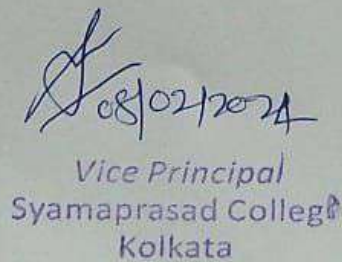 08/02/2024
Vice Principal
Syamaprasad College
Kolkata